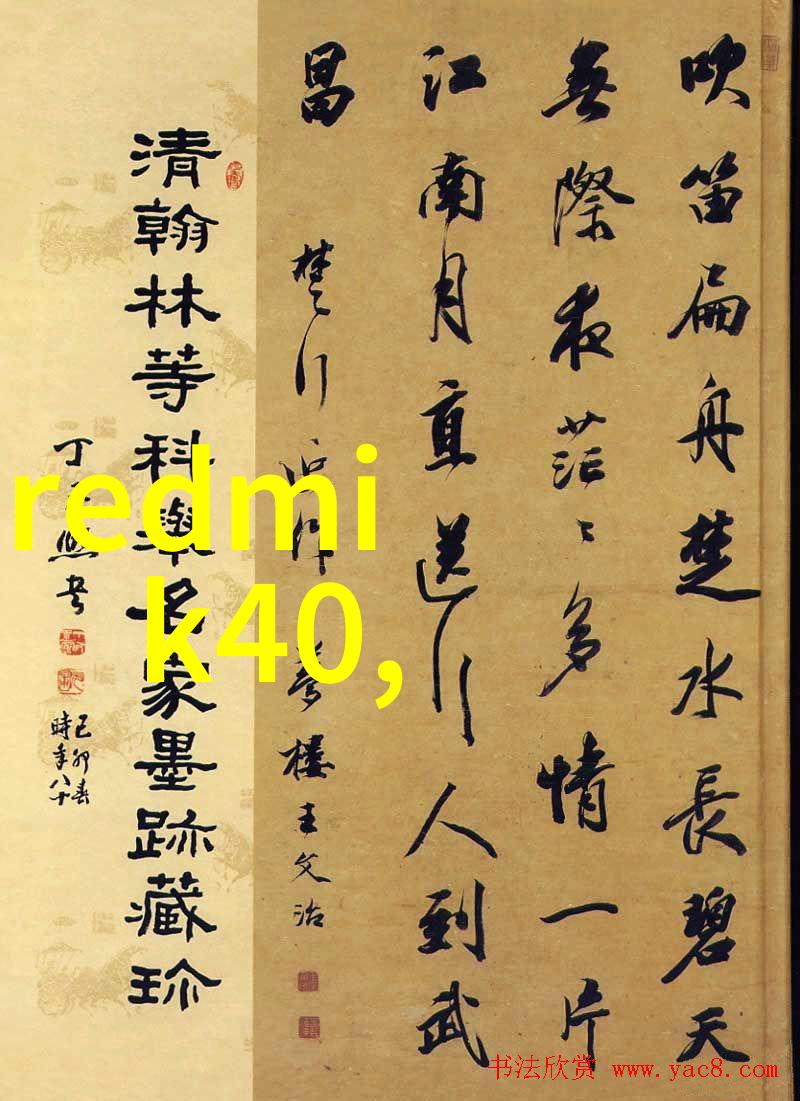 吹笛扁舟楚水長碧天
無際夜茫々多情一片
江南月直送行人到武
昌
楚行近作 夢樓王文治
清翰林等科舉名家墨跡藏珍
丁 书
己卯春
時年八十
redmi
k40,
书法欣赏 www.yac8.com